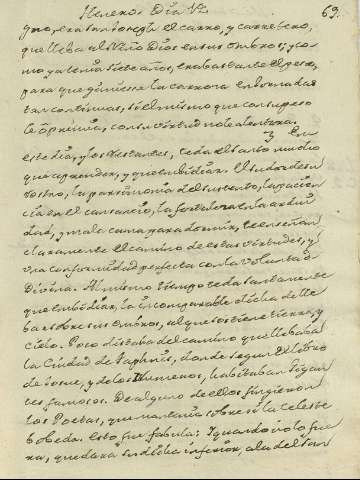 Dia V.
69.
y no, era tambien el carro, y carretero,
que lleba al Niño Dios en sus ombros; y co-
mo ya tenia siete años, era bastante el peso,
para que gimiesse la carroza en jornadas
tan continuas, si el mismo que con su peso
le oprimia, con su virtud no le alentara.
3 En
este dia, y los restantes, te da el santo mucho
que aprender, y que embidiar. El sudor de su
rostro, la parsimonia del sustento, la pacien-
cia en el cansancio, la fortaleza en la ardui-
dad, y mala cama para dormir, te enseñan
claramente el camino de estas virtudes, y
una conformidad perfecta con la voluntad
Divina. Al mismo tiempo te da santamente
que embidiar, la incomparable dicha de lle-
bar sobre sus ombros, al que sostiene tierra, y
cielo. Poco distaba del camino que llebaba
la Ciudad de Taphnis, donde segun el libro
de y de los Numeros, habitaban Gigan-
tes famosos. De alguno de ellos fingieron
los Poetas, que mantenia sobre si la celeste
bobeda. Esto fue fabula: y quando no lo fue-
ra, quedara su dicha inferior, a la del San